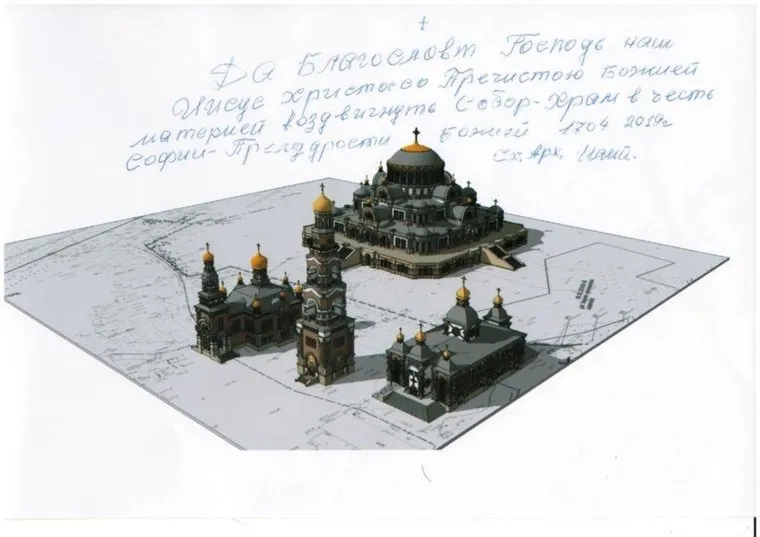 Да Благословт Господь наш
Иисус Христосо Пречистою Божией
материей воздвигнуть Собор-Храм в честь
Софии-Премудрости Божией 1704 2019г
Сх. Арх.